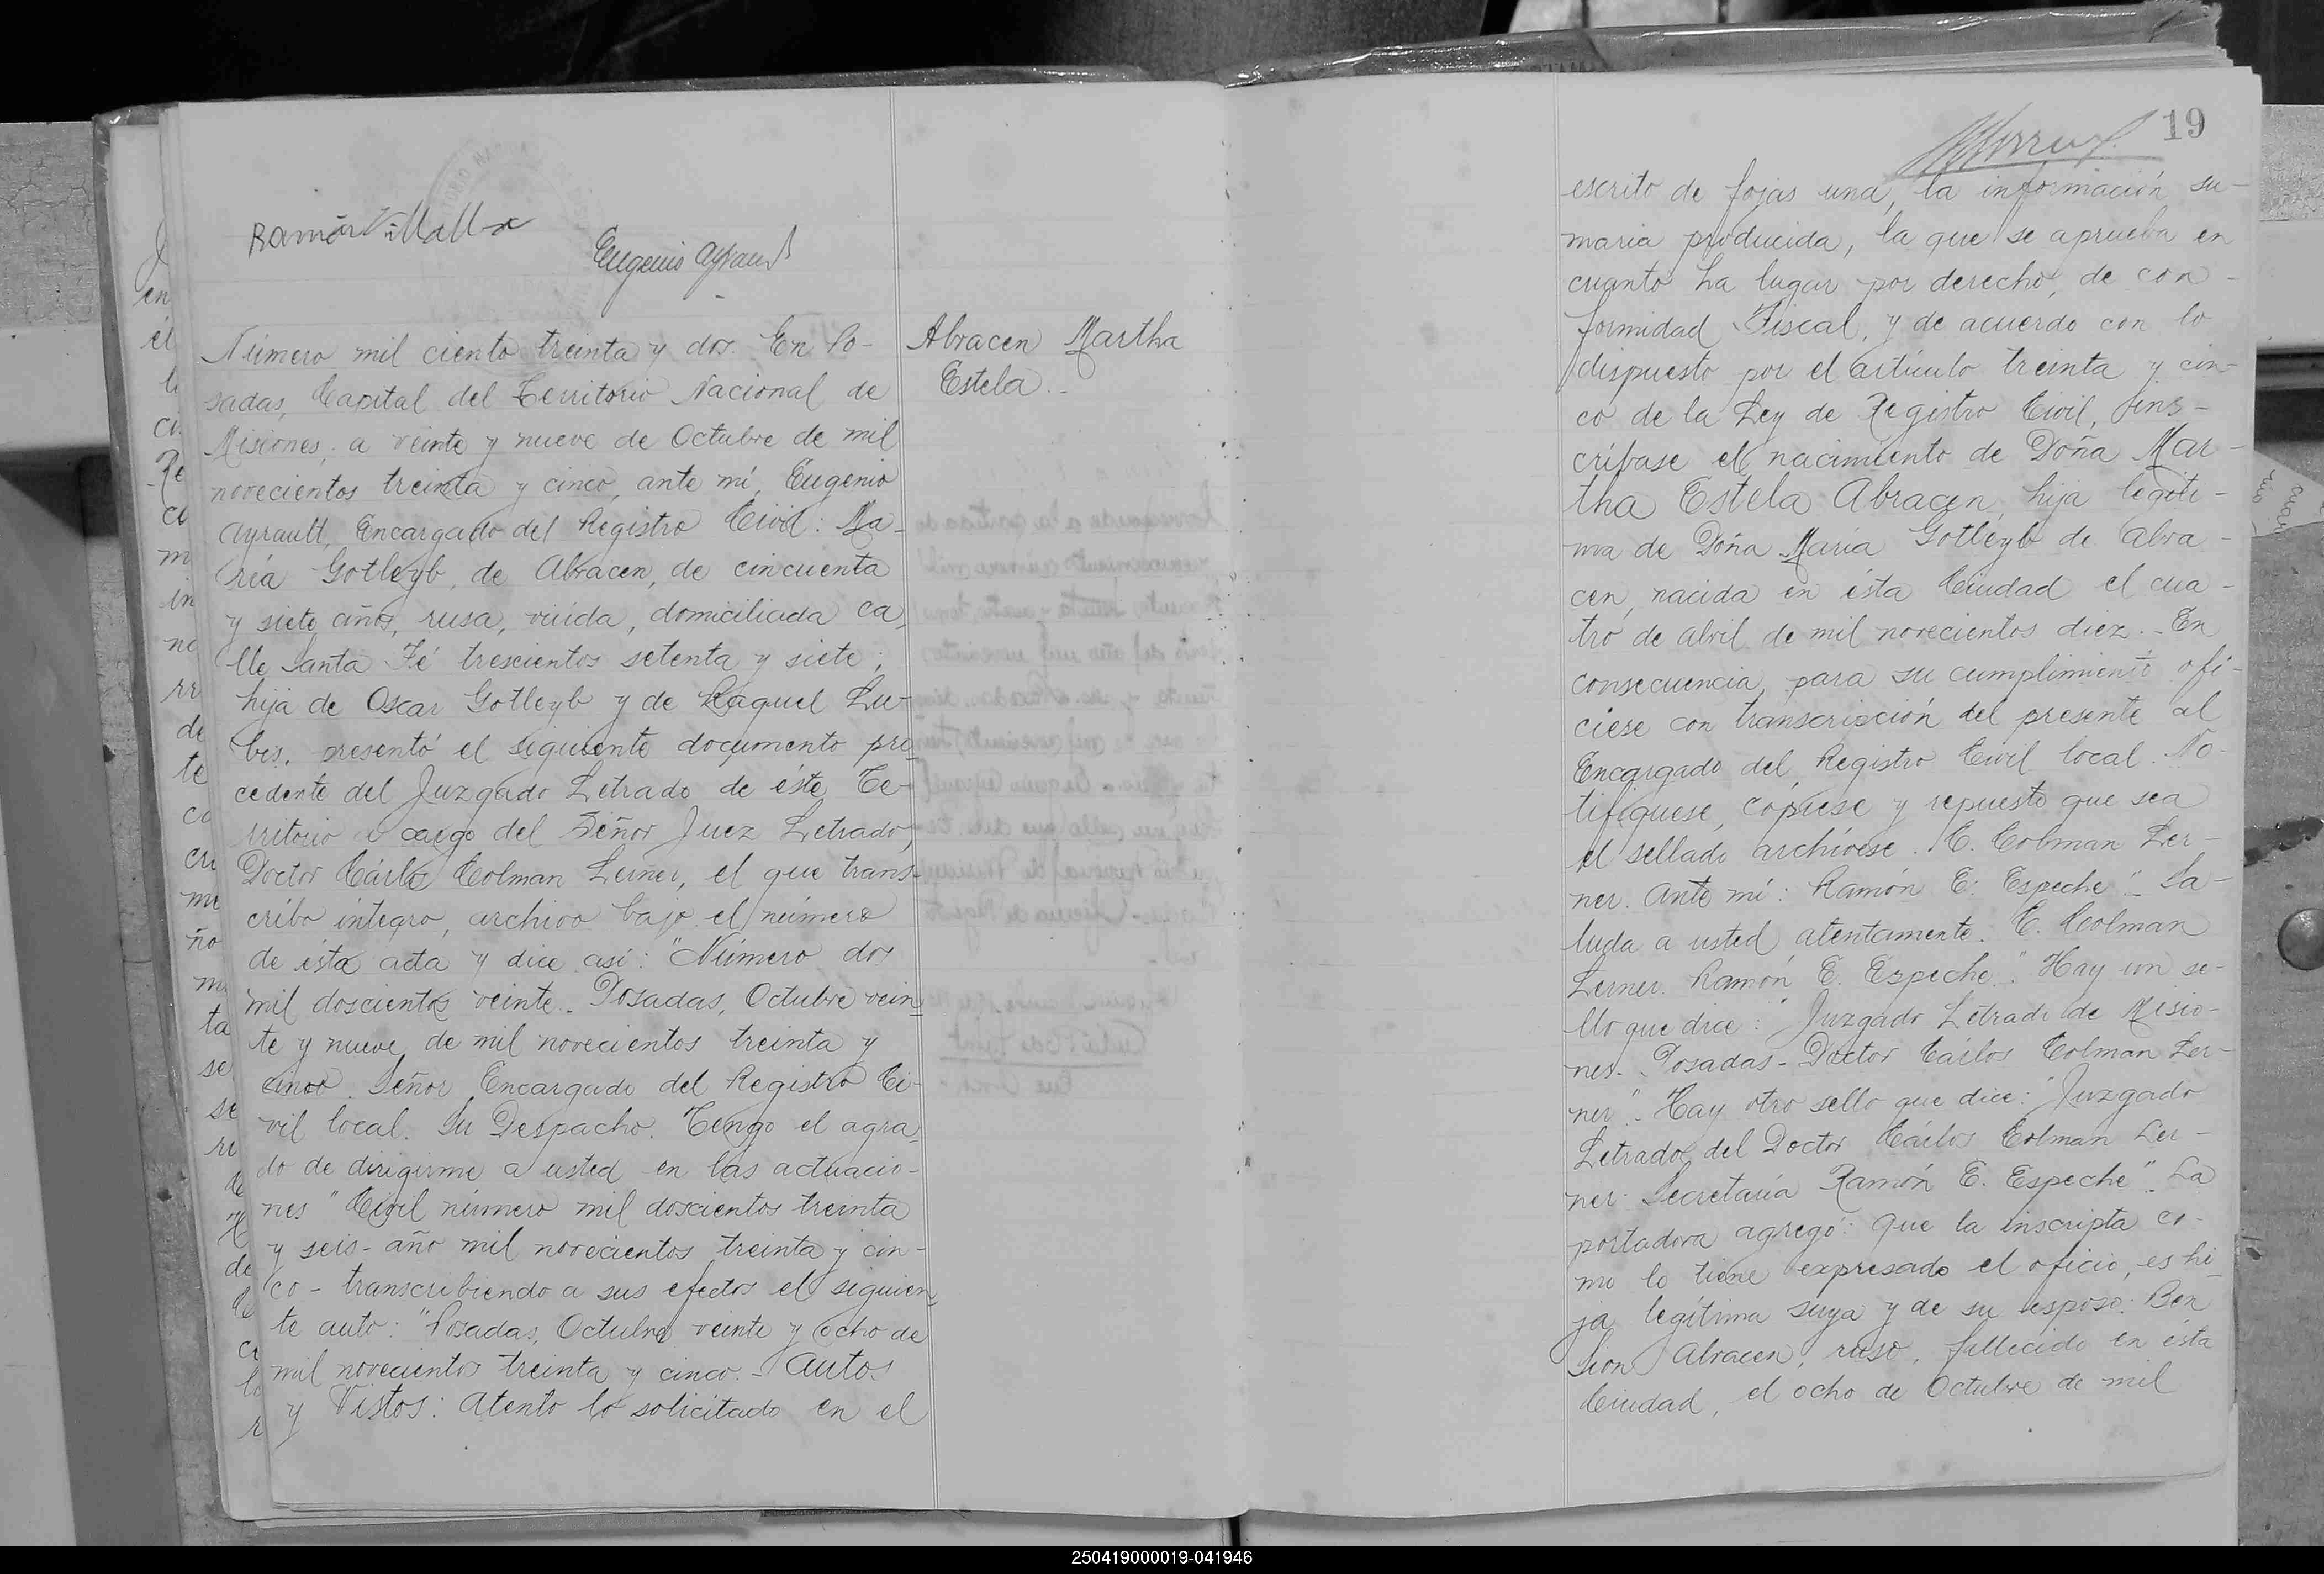 Ramón Villalba
Eugenio Ayrault
Número mil ciento treinta y dos. En Po-
sadas, Capital del Territorio Nacional de
Misiones, a veinte y nueve de Octubre de mil
novecientos treinta y cinco, ante mí, Eugenio
Ayrault, Encargado del Registro Civil: Ma-
ría Gotleyb, de Abracen, de cincuenta
y siete años, rusa, viuda, domiciliada ca-
lle Santa Fé trescientos setenta y siete;
hija de Oscar Gotleyb y de Raquel Lu-
bis, presentó el siguiente documento pro-
cedente del Juzgado Letrado de éste Te-
rritorio a cargo del Señor Juez Letrado,
Doctor Cárlos Colman Lerner, el que trans-
cribo íntegro, archivo bajo el número
de ésta acta y dice así: "Número dos
mil doscientos veinte.. Posadas, Octubre vein-
te y nueve de mil novecientos treinta y
cinco. Señor Encargado del Registro Ci-
vil local. Su Despacho. Tengo el agra-
do de dirigirme a usted en las actuacio-
nes "Civil número mil doscientos treinta
y seis- año mil novecientos treinta y cin-
co - transcribiendo a sus efectos el siguien-
te auto: "Posadas, Octubre veinte y ocho de
mil novecientos treinta y cinco.- Autos
y Vistos: Atento lo solicitado en el
Abracen Martha
Estela..
19
escrito de fojas una, la información su-
maria producida, la que se aprueba en
cuanto ha lugar por derecho, de con-
formidad Fiscal, y de acuerdo con lo
dispuesto por el artículo treinta y cin-
co de la Ley de Registro Civil, ins-
críbase el nacimiento de Doña Mar-
tha Estela Abracen, hija legíti-
ma de Doña María Gotleyb de Abra-
cen, nacida en ésta Ciudad el cua-
tro de abril de mil novecientos diez.- En
consecuencia, para su cumplimiento ofi-
ciese con transcripción del presente al
Encargado del Registro Civil local. No-
tifíquese, cópiese y repuesto que sea
el sellado archívese. C. Colman Ler-
ner. Ante mí: Ramón E. Espeche".- Sa-
luda a usted atentamente. C. Colman
Lerner. Ramón E. Espeche". Hay un se-
llo que dice: "Juzgado Letrado de Misio-
nes.- Posadas- Doctor Cárlos Colman Ler-
ner".- Hay otro sello que dice: "Juzgado
Letrado del Doctor Cárlos Colman Ler-
ner. Secretaría Ramón E. Espeche". La
portadora agregó: que la inscripta co-
mo lo tiene expresado el oficio, es hi-
ja legítima suya y de su esposo: Ben
Sion Abracen, ruso, fallecido en ésta
Ciudad, el ocho de Octubre de mil
250419000019-041946